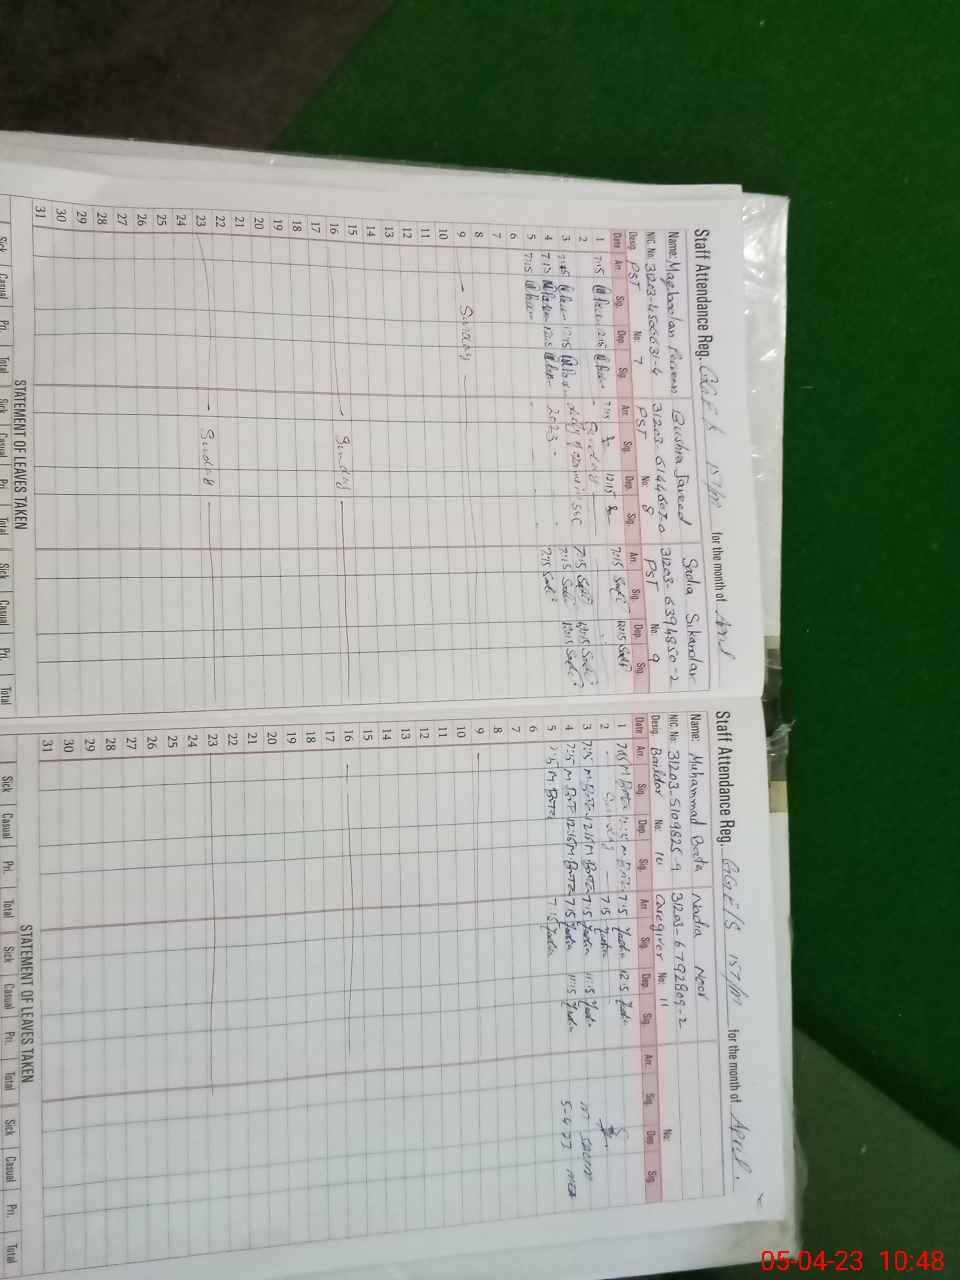 Staff Attendance Reg. 157/M for the month of April
Name: Maqboolan Parveen Bushra Javeed Sadia Sikandar
NIC No. 31203-4506631-4 31203-6144607-0 31203-6394850-2
Desig. PST No: 7 PST No: 8 PST No: 9
Date Arr. Sig. Dep. Sig. Arr. Sig. Dep. Sig. Arr. Sig. Dep. Sig.
1 7:15 12:15 7:15 12:15 7:15 Sadi 12:15 Sadi
2 Sunday
3 7:15 12:15 7:15 Sadi 12:15 Sadi
4 7:15 12:15 2023 7:15 Sadi 12:15 Sadi
5 7:15 7:15 Sadi
6
7
8
9 Sunday
10
11
12
13
14
15
16 Sunday
17
18
19
20
21
22
23 Sunday
24
25
26
27
28
29
30
31
STATEMENT OF LEAVES TAKEN
Sick Casual Pri. Total Sick Casual Pri. Total Sick Casual Pri. Total
Staff Attendance Reg. GGE/S 157/M for the month of April
Name: Muhammad Boota Nadia Noor
NIC No. 31203-5109825-9 31203-6792809-2
Desig. Baildar No: 10 Caregiver No: 11 No:
Date Arr. Sig. Dep. Sig. Arr. Sig. Dep. Sig. Arr. Sig. Dep. Sig.
1 7:15 M Boota M Boota 7:15 Nadia 12:15 Nadia
2 Sunday 7:15 Nadia
3 7:15 M Boota 12:15 M Boota 7:15 Nadia 11:15 Nadia
4 7:15 M Boota 12:15 M Boota 7:15 Nadia 11:15 Nadia 5-4-23 MEA
5 7:15 M Boota 7:15 Nadia
6
7
8
9
10
11
12
13
14
15
16
17
18
19
20
21
22
23
24
25
26
27
28
29
30
31
STATEMENT OF LEAVES TAKEN
Sick Casual Pri. Total Sick Casual Pri. Total Sick Casual Pri. Total
05-04-23 10:48